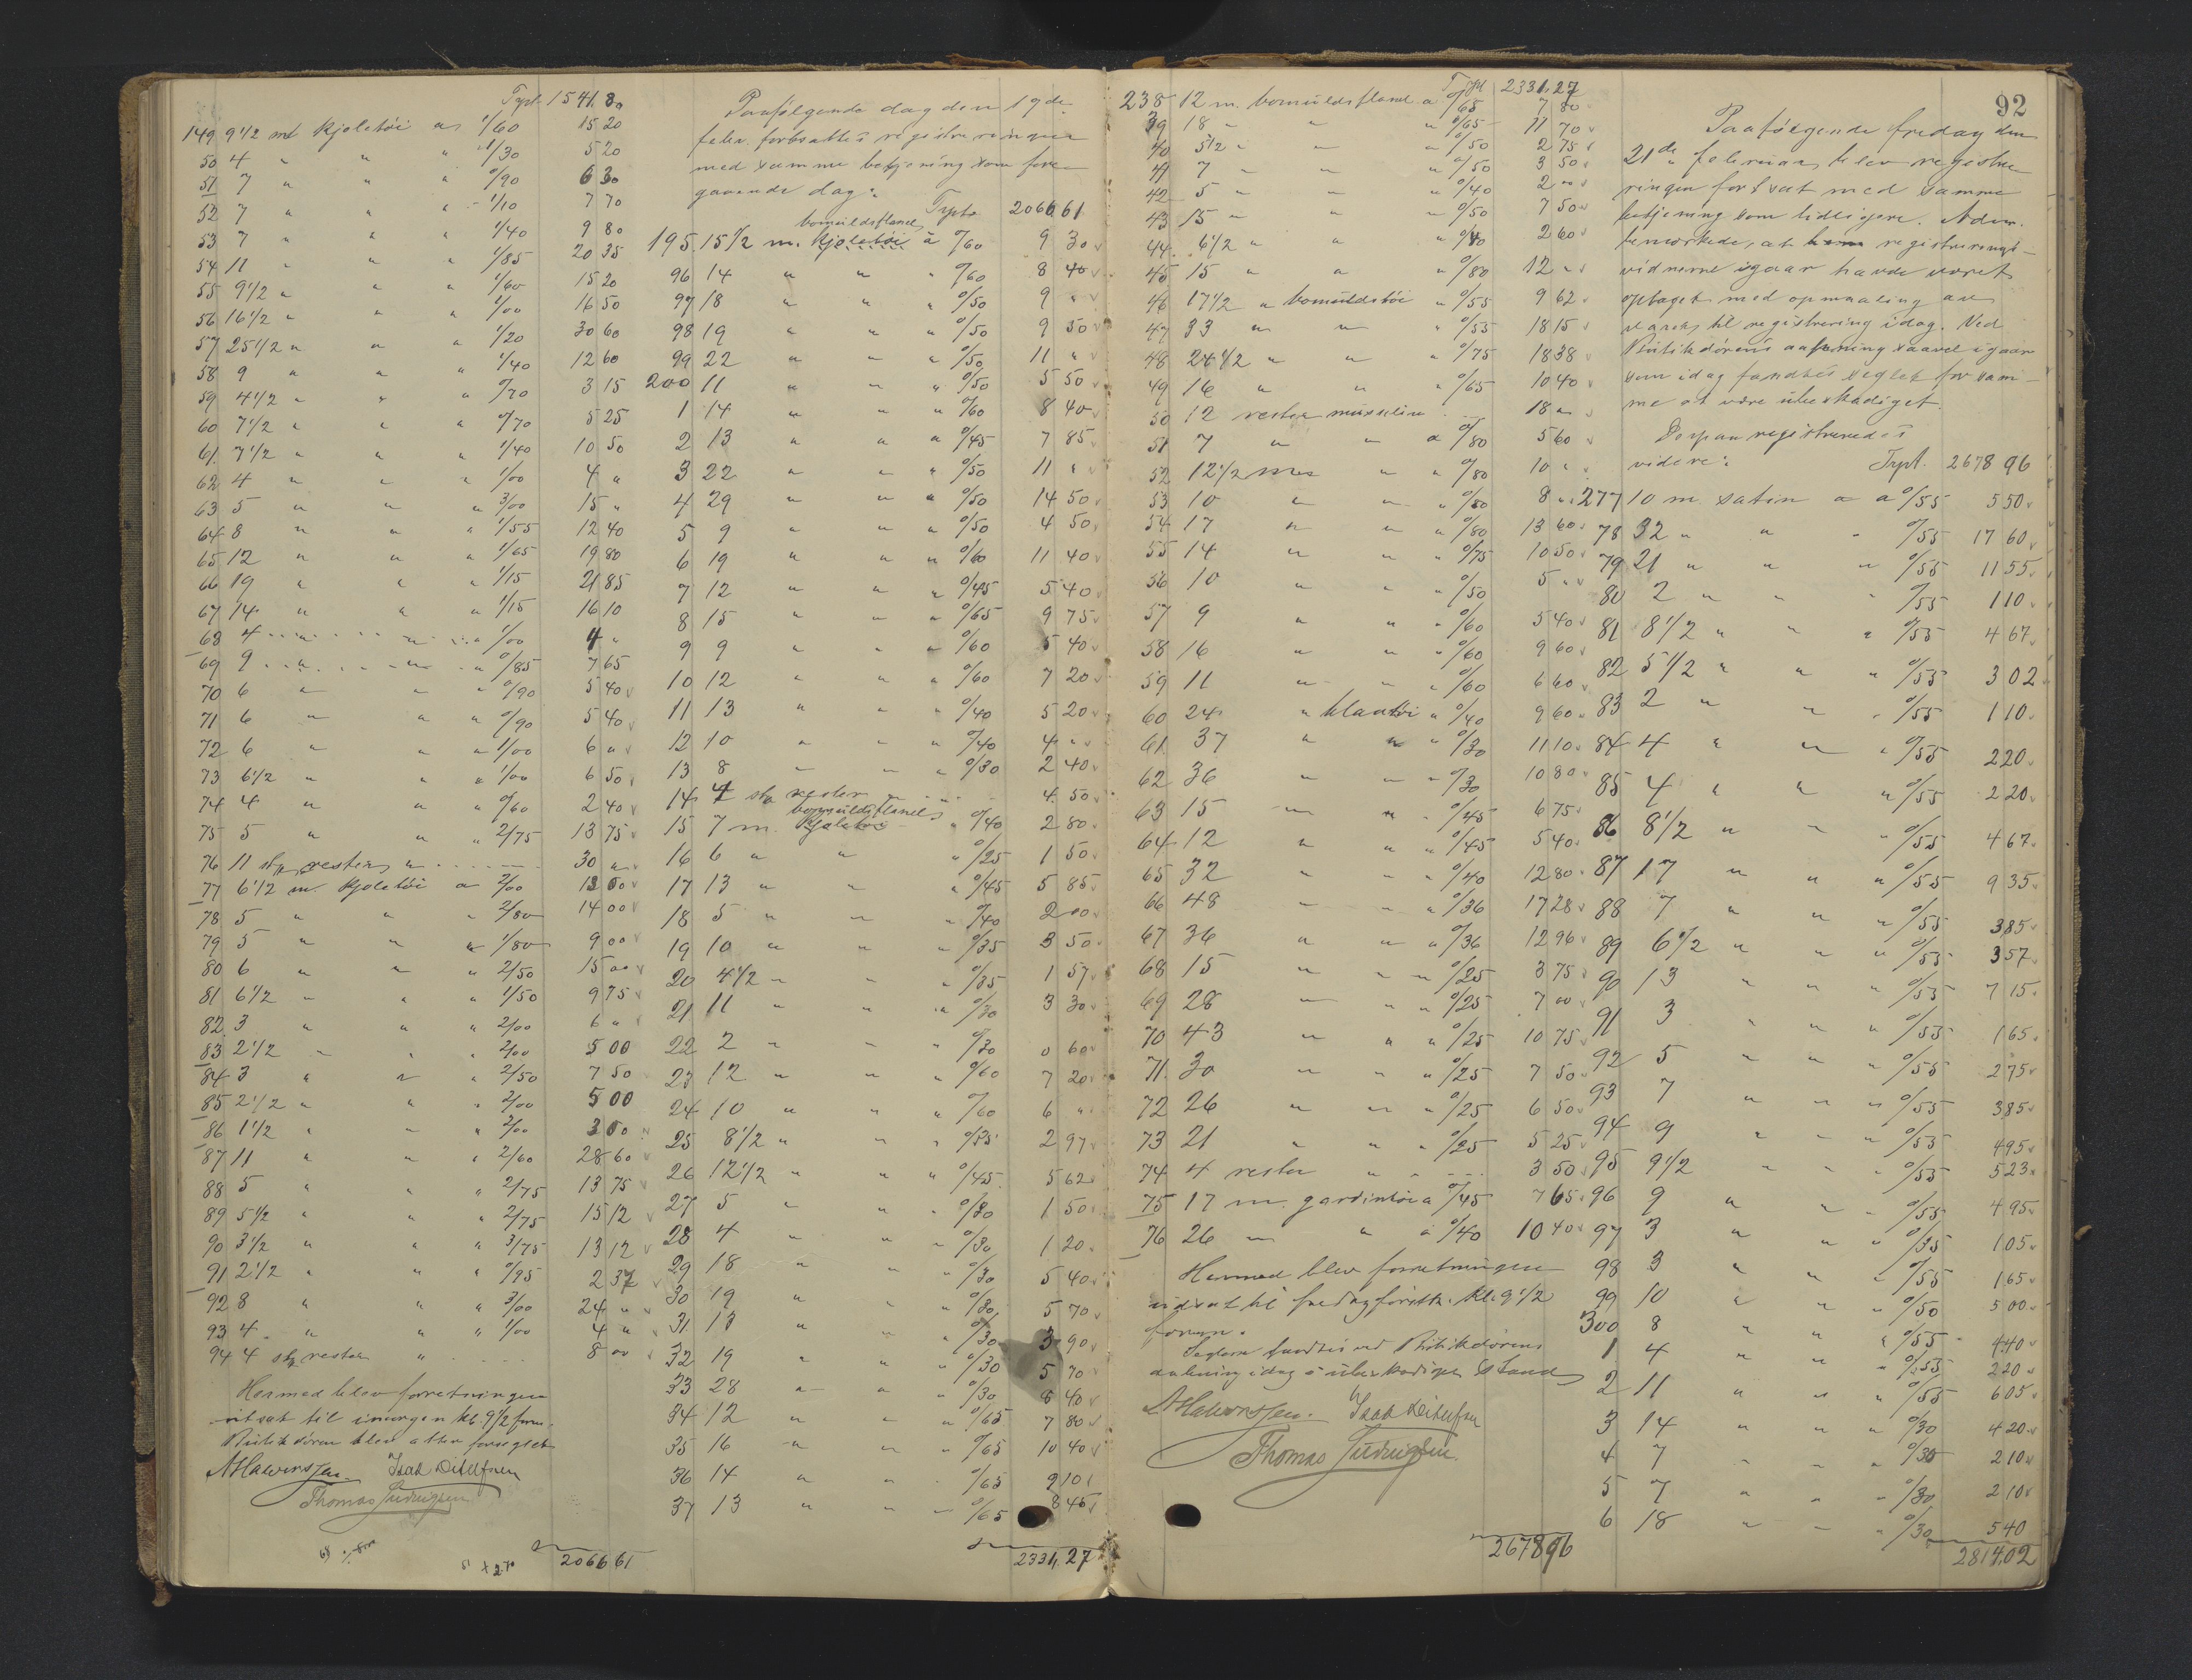 Trpt. 1541.80
149 9 1/2 mt kjoletöi a 1/60 15 20
50 4 " " " 1/30 5 20
51 7 " " " 0/90 6 30
52 7 " " " 1/10 7 70
53 7 " " " 1/40 9 80
54 11 " " " 1/85 20 35
55 9 1/2 " " " 1/60 15 20
56 16 1/2 " " " 1/00 16 50
57 25 1/2 " " " 1/20 30 60
58 9 " " " 1/40 12 60
59 4 1/2 " " " 0/70 3 15
60 7 1/2 " " " 0/70 5 25
61 7 1/2 " " " 1/40 10 50
62 4 " " " 1/00 4 "
63 5 " " " 3/00 15 "
64 8 " " " 1/55 12 40
65 12 " " " 1/65 19 80
66 19 " " " 1/15 21 85
67 14 " " " 1/15 16 10
68 4 " " " 1/00 4 "
69 9 " " " 0/85 7 65
70 6 " " " 0/90 5 40
71 6 " " " 0/90 5 40
72 6 " " " 1/00 6 "
73 6 1/2 " " " 1/00 6 50
74 4 " " " 0/60 2 40
75 5 " " " 2/75 13 75
76 11 stk rester " 30 "
77 6 1/2 m. kjoletöi a 2/00 13 00
78 5 " " " 2/80 14 00
79 5 " " " 1/80 9 00
80 6 " " " 2/50 15 00
81 6 1/2 " " " 1/50 9 75
82 3 " " " 2/00 6 "
83 2 1/2 " " " 2/00 5 00
84 3 " " " 2/50 7 50
85 2 1/2 " " " 2/00 5 00
86 1 1/2 " " " 2/00 3 00
87 11 " " " 2/60 28 60
88 5 " " " 2/75 13 75
89 5 1/2 " " " 2/75 15 12
90 3 1/2 " " " 3/75 13 12
91 2 1/2 " " " 0/95 2 37
92 8 " " " 3/00 24 "
93 4 " " " 1/00 4 "
94 4 stk rester " 8 00
Hermed blev forretningen
utsat til imorgen kl. 9 1/2 form.
Butikdören blev atter forseglet
AHalvorssen. Isak Ditlefsen
Thomas Ludvigsen
2066 61
Paafölgende dag den 19de
febr. fortsattes registreringen
med samme betjening som fore-
gaaende dag:
Trpt. 2066 61
bomuldsflanel
195. 15 1/2 m. kjoletöi à 0/60 9 30
96 14 " " " 0/60 8 40
97 18 " " " 0/50 9 "
98 19 " " " 0/50 9 50
99 22 " " " 0/50 11 "
200 11 " " " 0/50 5 50
1 14 " " " 0/60 8 40
2 13 " " " 0/45 7 85
3 22 " " " 0/50 11 "
4 29 " " " 0/50 14 50
5 9 " " " 0/50 4 50
6 19 " " " 0/60 11 40
7 12 " " " 0/45 5 40
8 15 " " " 0/65 9 75
9 9 " " " 0/60 5 40
10 12 " " " 0/60 7 20
11 13 " " " 0/40 5 20
12 10 " " " 0/40 4 "
13 8 " " " 0/30 2 40
14 4 stk rester " 4 50
bomuldsflanel
15 7 m. kjoletöi " 0/40 2 80
16 6 " " " 0/25 1 50
17 13 " " " 0/45 5 85
18 5 " " " 0/40 2 00
19 10 " " " 0/35 3 50
20 4 1/2 " " " 0/35 1 57
21 11 " " " 0/30 3 30
22 2 " " " 0/30 0 60
23 12 " " " 0/60 7 20
24 10 " " " 0/60 6 "
25 8 1/2 " " " 0/35 2 97
26 12 1/2 " " " 0/45 5 62
27 5 " " " 0/30 1 50
28 4 " " " 0/30 1 20
29 18 " " " 0/30 5 40
30 19 " " " 0/30 5 70
31 13 " " " 0/30 3 90
32 19 " " " 0/30 5 70
33 28 " " " 0/30 8 40
34 12 " " " 0/65 7 80
35 16 " " " 0/65 10 40
36 14 " " " 0/65 9 10
37 13 " " " 0/65 8 45
2331,27
Trpt 2331.27
238 12 m. bomuldsflanel a 0/65 7 80
39 18 " " " 0/65 11 70
40 5 1/2 " " " 0/50 2 75
41 7 " " " 0/50 3 50
42 5 " " " 0/40 2 00
43 15 " " " 0/50 7 50
44 6 1/2 " " " 0/40 2 60
45 15 " " " 0/80 12 "
46 17 1/2 " bomuldstöi " 0/55 9 62
47 33 " " " 0/55 18 15
48 24 1/2 " " " 0/75 18 38
49 16 " " " 0/65 10 40
50 12 rester musselin 18 "
51 7 " " a 0/80 5 60
52 12 1/2 mer " " 0/80 10 "
53 10 " " " 0/80 8 "
54 17 " " " 0/80 13 60
55 14 " " " 0/75 10 50
56 10 " " " 0/50 5 "
57 9 " " " 0/60 5 40
58 16 " " " 0/60 9 60
59 11 " " " 0/60 6 60
60 24 " blaatöi " 0/40 9 60
61 37 " " " 0/30 11 10
62 36 " " " 0/30 10 80
63 15 " " " 0/45 6 75
64 12 " " " 0/45 5 40
65 32 " " " 0/40 12 80
66 48 " " " 0/36 17 28
67 36 " " " 0/36 12 96
68 15 " " " 0/25 3 75
69 28 " " " 0/25 7 00
70 43 " " " 0/25 10 75
71 30 " " " 0/25 7 50
72 26 " " " 0/25 6 50
73 21 " " " 0/25 5 25
74 4 rester " " 3 50
75 17 m. gardintöi a 0/45 7 65
76 26 " " à 0/40 10 40
Hermed blev forretningen
udsat til fredag førstk. kl. 9 1/2
form.
Seglene fandtes ved Butikdörens
aabning idag i ubeskadiget Stand
AHalvorssen. Isak Ditlefsen
Thomas Ludvigsen.
2678 96
92
Paafölgende fredag den
21de februar, blev registre-
ringen fortsat med samme
betjening som tidligere. Adm.
bemærkede, at registrerings-
vidnerne igaar havde været
optaget med opmaaling av
varer til registrering idag. Ved
Butikdörens aabning saavel igaar
som idag fandtes seglet for sam-
me at være ubeskadiget.
Derpaa registreredes
videre: Trpt. 2678 96
277 10 m. satin a a 0/55 5 50
78 32 " " " 0/55 17 60
79 21 " " " 0/55 11 55
80 2 " " " 0/55 1 10
81 8 1/2 " " " 0/55 4 67
82 5 1/2 " " " 0/55 3 02
83 2 " " " 0/55 1 10
84 4 " " " 0/55 2 20
85 4 " " " 0/55 2 20
86 8 1/2 " " " 0/55 4 67
87 17 " " " 0/55 9 35
88 7 " " " 0/55 3 85
89 6 1/2 " " " 0/55 3 57
90 13 " " " 0/55 7 15
91 3 " " " 0/55 1 65
92 5 " " " 0/55 2 75
93 7 " " " 0/55 3 85
94 9 " " " 0/55 4 95
95 9 1/2 " " " 0/55 5 23
96 9 " " " 0/55 4 95
97 3 " " " 0/35 1 05
98 3 " " " 0/55 1 65
99 10 " " " 0/50 5 00
300 8 " " " 0/55 4 40
1 4 " " " 0/55 2 20
2 11 " " " 0/55 6 05
3 14 " " " 0/30 4 20
4 7 " " " 0/30 2 10
5 7 " " " 0/30 2 10
6 18 " " " 0/30 5 40
2814.02